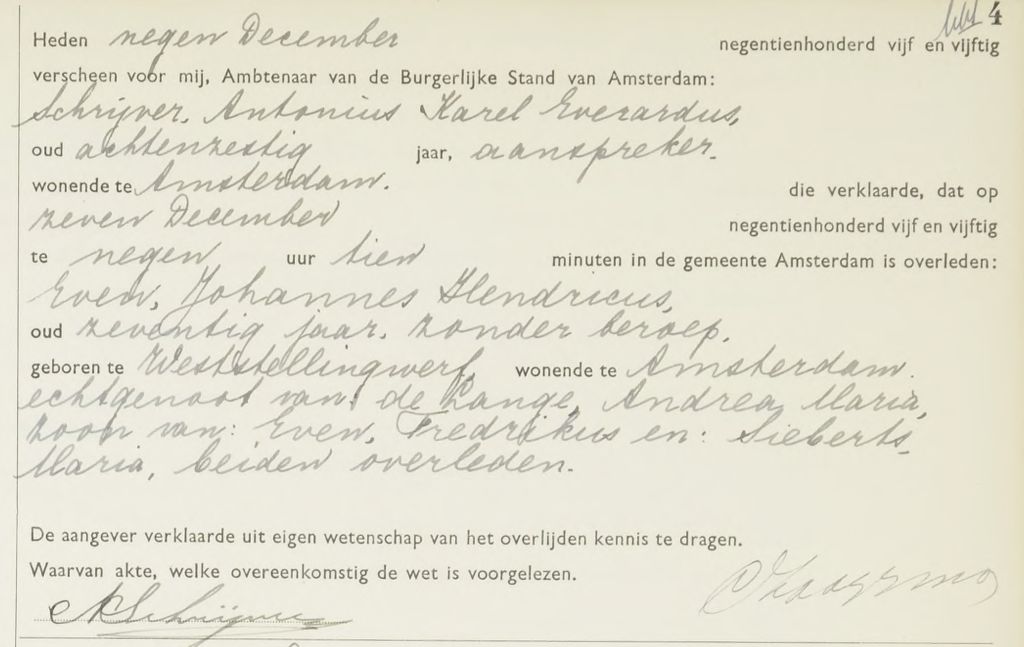 4
Heden negen December negentienhonderd vijf en vijftig
verscheen voor mij, Ambtenaar van de Burgerlijke Stand van Amsterdam:
Schrijver, Antonius Karel Everardus,
oud achtenzestig jaar, aanspreker,
wonende te Amsterdam. die verklaarde, dat op
zeven December negentienhonderd vijf en vijftig
te negen uur tien minuten in de gemeente Amsterdam is overleden:
Even, Johannes Hendricus,
oud zeventig jaar, zonder beroep,
geboren te Weststellingwerf, wonende te Amsterdam.
echtgenoot van: de Lange, Andrea Maria,
zoon van: Even, Fredrikus en: Sieberts,
Maria, beiden overleden.
De aangever verklaarde uit eigen wetenschap van het overlijden kennis te dragen.
Waarvan akte, welke overeenkomstig de wet is voorgelezen.
Schrijver